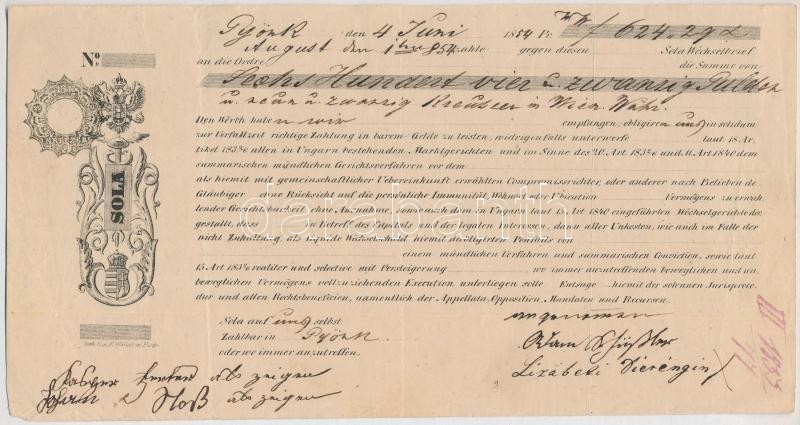 Pyönk den 4 Juni 1854 Pr. WW f 624.29 x
August den 1ten 854 zahle gegen diesen Sola Wechselbrief
No
an die Ordre die Summe von
Sechs Hundert vier u. zwanzig Gulden
u. neun u. zwanzig Kreuzer in Wien. Währ.
Den Werth haben wir empfangen, obligiren uns in solidum
zur Verfallzeit richtige Zahlung in barem Gelde zu leisten, widrigenfalls unterwerfe laut 18. Ar-
tikel 183 2/6 allen in Ungarn bestehenden Marktgerichten und im Sinne des 20. Art. 183 2/6 und 11. Art 1840 dem
summarischen mündlichen Gerichtsverfahren vor dem
als hiemit mit gemeinschaftlicher Uebereinkunft erwählten Compromissrichter, oder anderer nach Belieben de
Gläubiger ohne Rücksicht auf die persönliche Immunität, Wohnort oder Ubication Vermögens zu erwäh-
lender Gerichtsbarkeit ohne Ausnahme, sowie auch dem in Ungarn laut 15. Art 1840 eingeführten Wechselgerichte der-
gestallt, dass in Betreff des Capitals und der legalen Interessen, dann aller Unkosten, wie auch im Falle der
nicht Zuhaltung, als liquide Wechselschuld hiemit bedingten Poenfalls von
einem mündlichen Verfahren und summarischen Conviction, sowie laut
15 Art 183 2/6 realiter und selective mit Persteigerung wo immer anzutreffenden beweglichen und un-
beweglichen Vermögens vollzuziehenden Execution unterliegen solle Entsage hiemit der solennen Jurisprece-
dur und allen Rechtsbeneficien, namentlich der Appellata, Opposition, Mandaten und Recursen.
SOLA
Sola auf uns selbst angenomen
Zahlbar in Pyönk Adam Schüssler
oder wo immer anzutreffen. Lizábeti Dieréngin
als zeigen
Johann Stoß als zeigen
darabanth